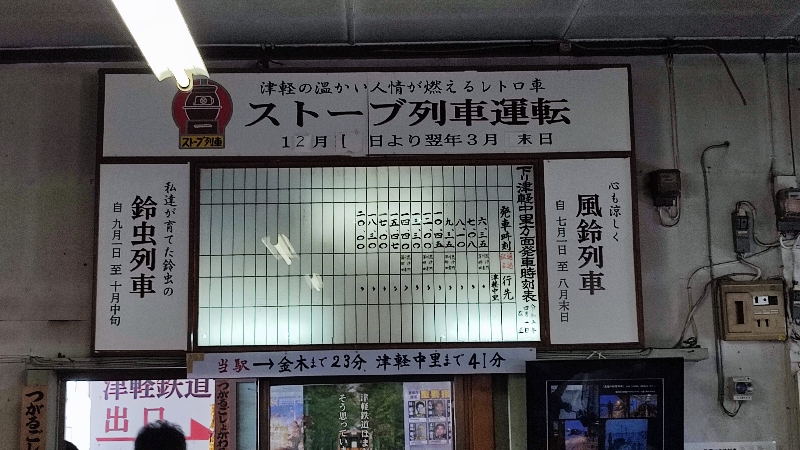 津軽の温かい人情が燃えるレトロ車
ストーブ列車運転
12月1日より翌年3月末日
ストーブ列車
心も涼しく
風鈴列車
自 七月一日 至 八月末日
下り津軽中里方面発車時刻表
発車時刻
行先
津軽中里
六、三五
七、〇八
八、一〇
九、三五
一〇、四五
一二、〇〇
一三、一〇
一四、〇〇
一五、四七
一七、〇〇
一八、三〇
二〇、〇〇
私達が育てた鈴虫の
鈴虫列車
自 九月一日 至 十月中旬
当駅→金木まで23分 津軽中里まで41分
津軽鉄道
出口
津軽鉄道はま
そう思ってい